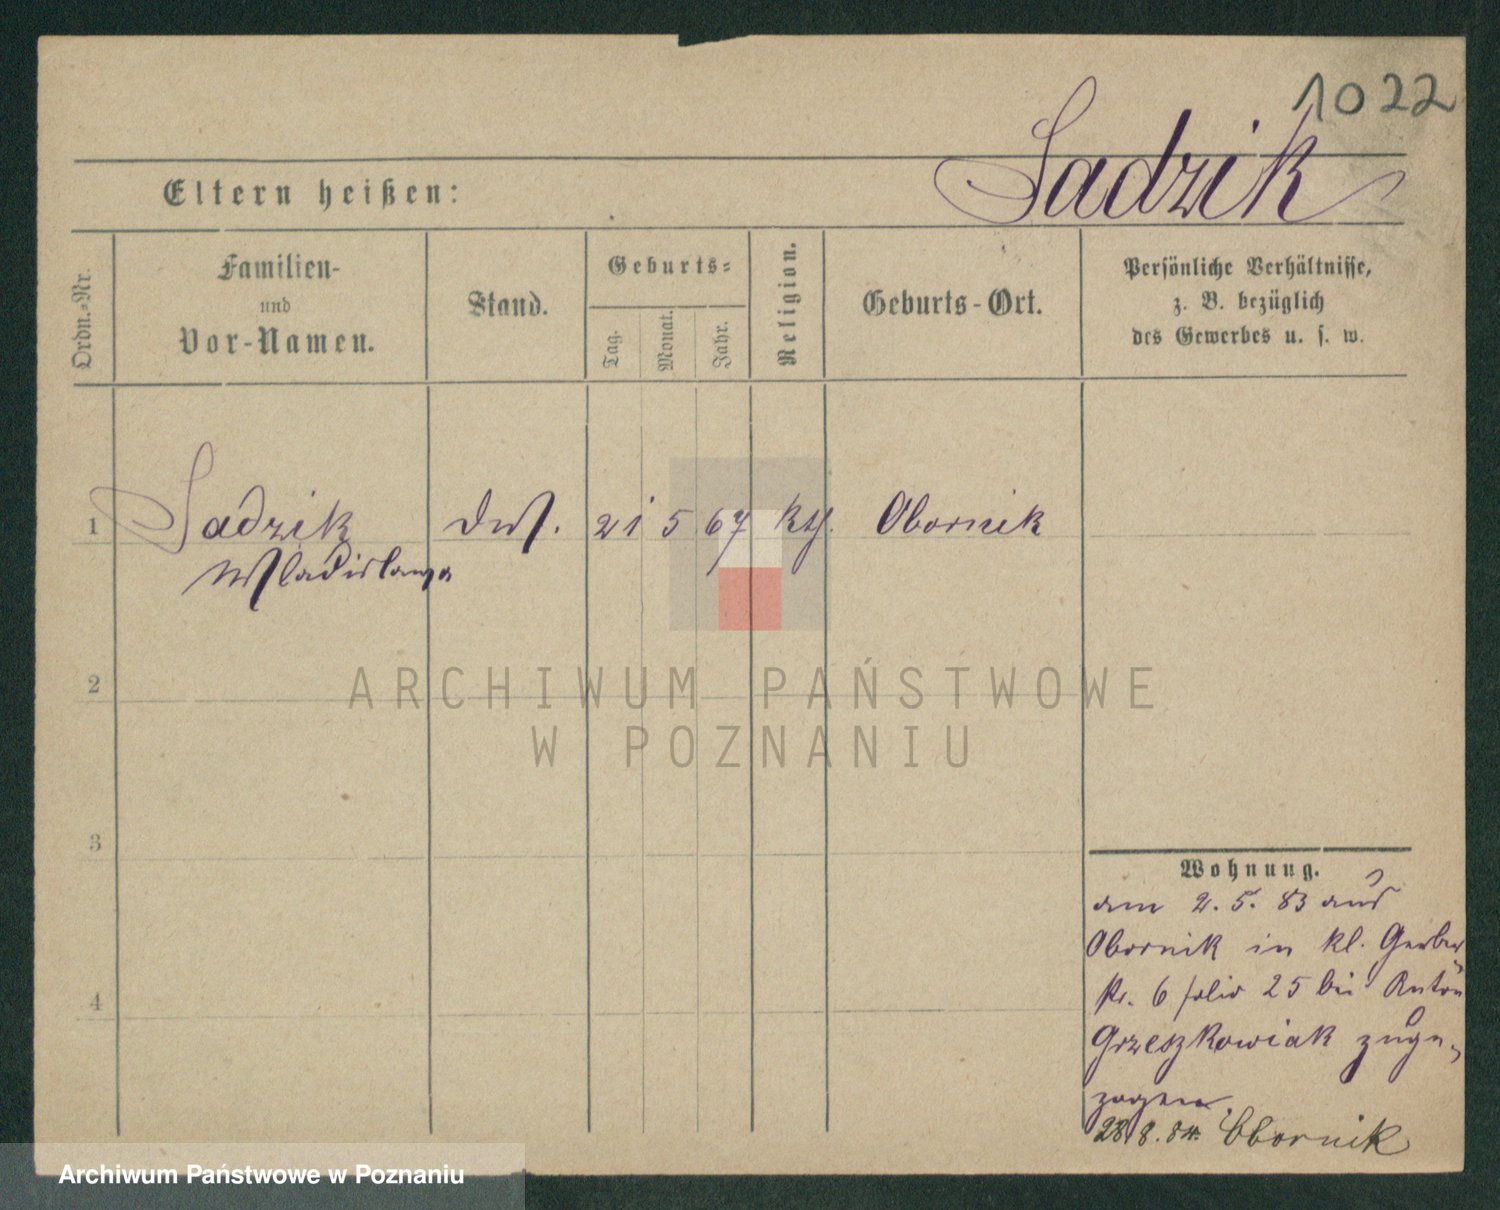 1022
Sadzik
Eltern heißen:
Ordn.-Nr.
Familien-
und
Vor-Namen.
Stand.
Geburts-
Tag.
Monat.
Jahr.
Religion.
Geburts-Ort.
Persönliche Verhältnisse,
z. B. bezüglich
des Gewerbes u. s. w.
1 Sadzik 21 5 67 kth. Obornik
Wladislawa
2
ARCHIWUM PAŃSTWOWE
W POZNANIU
3
Wohnung.
am 2. 5. 83 aus
Obornik in kl. Gerber
str. 6 folio 25 bei Anton
Grzeszkowiak zuge-
zogen.
4
28/8. 84. Obornik
Archiwum Państwowe w Poznaniu